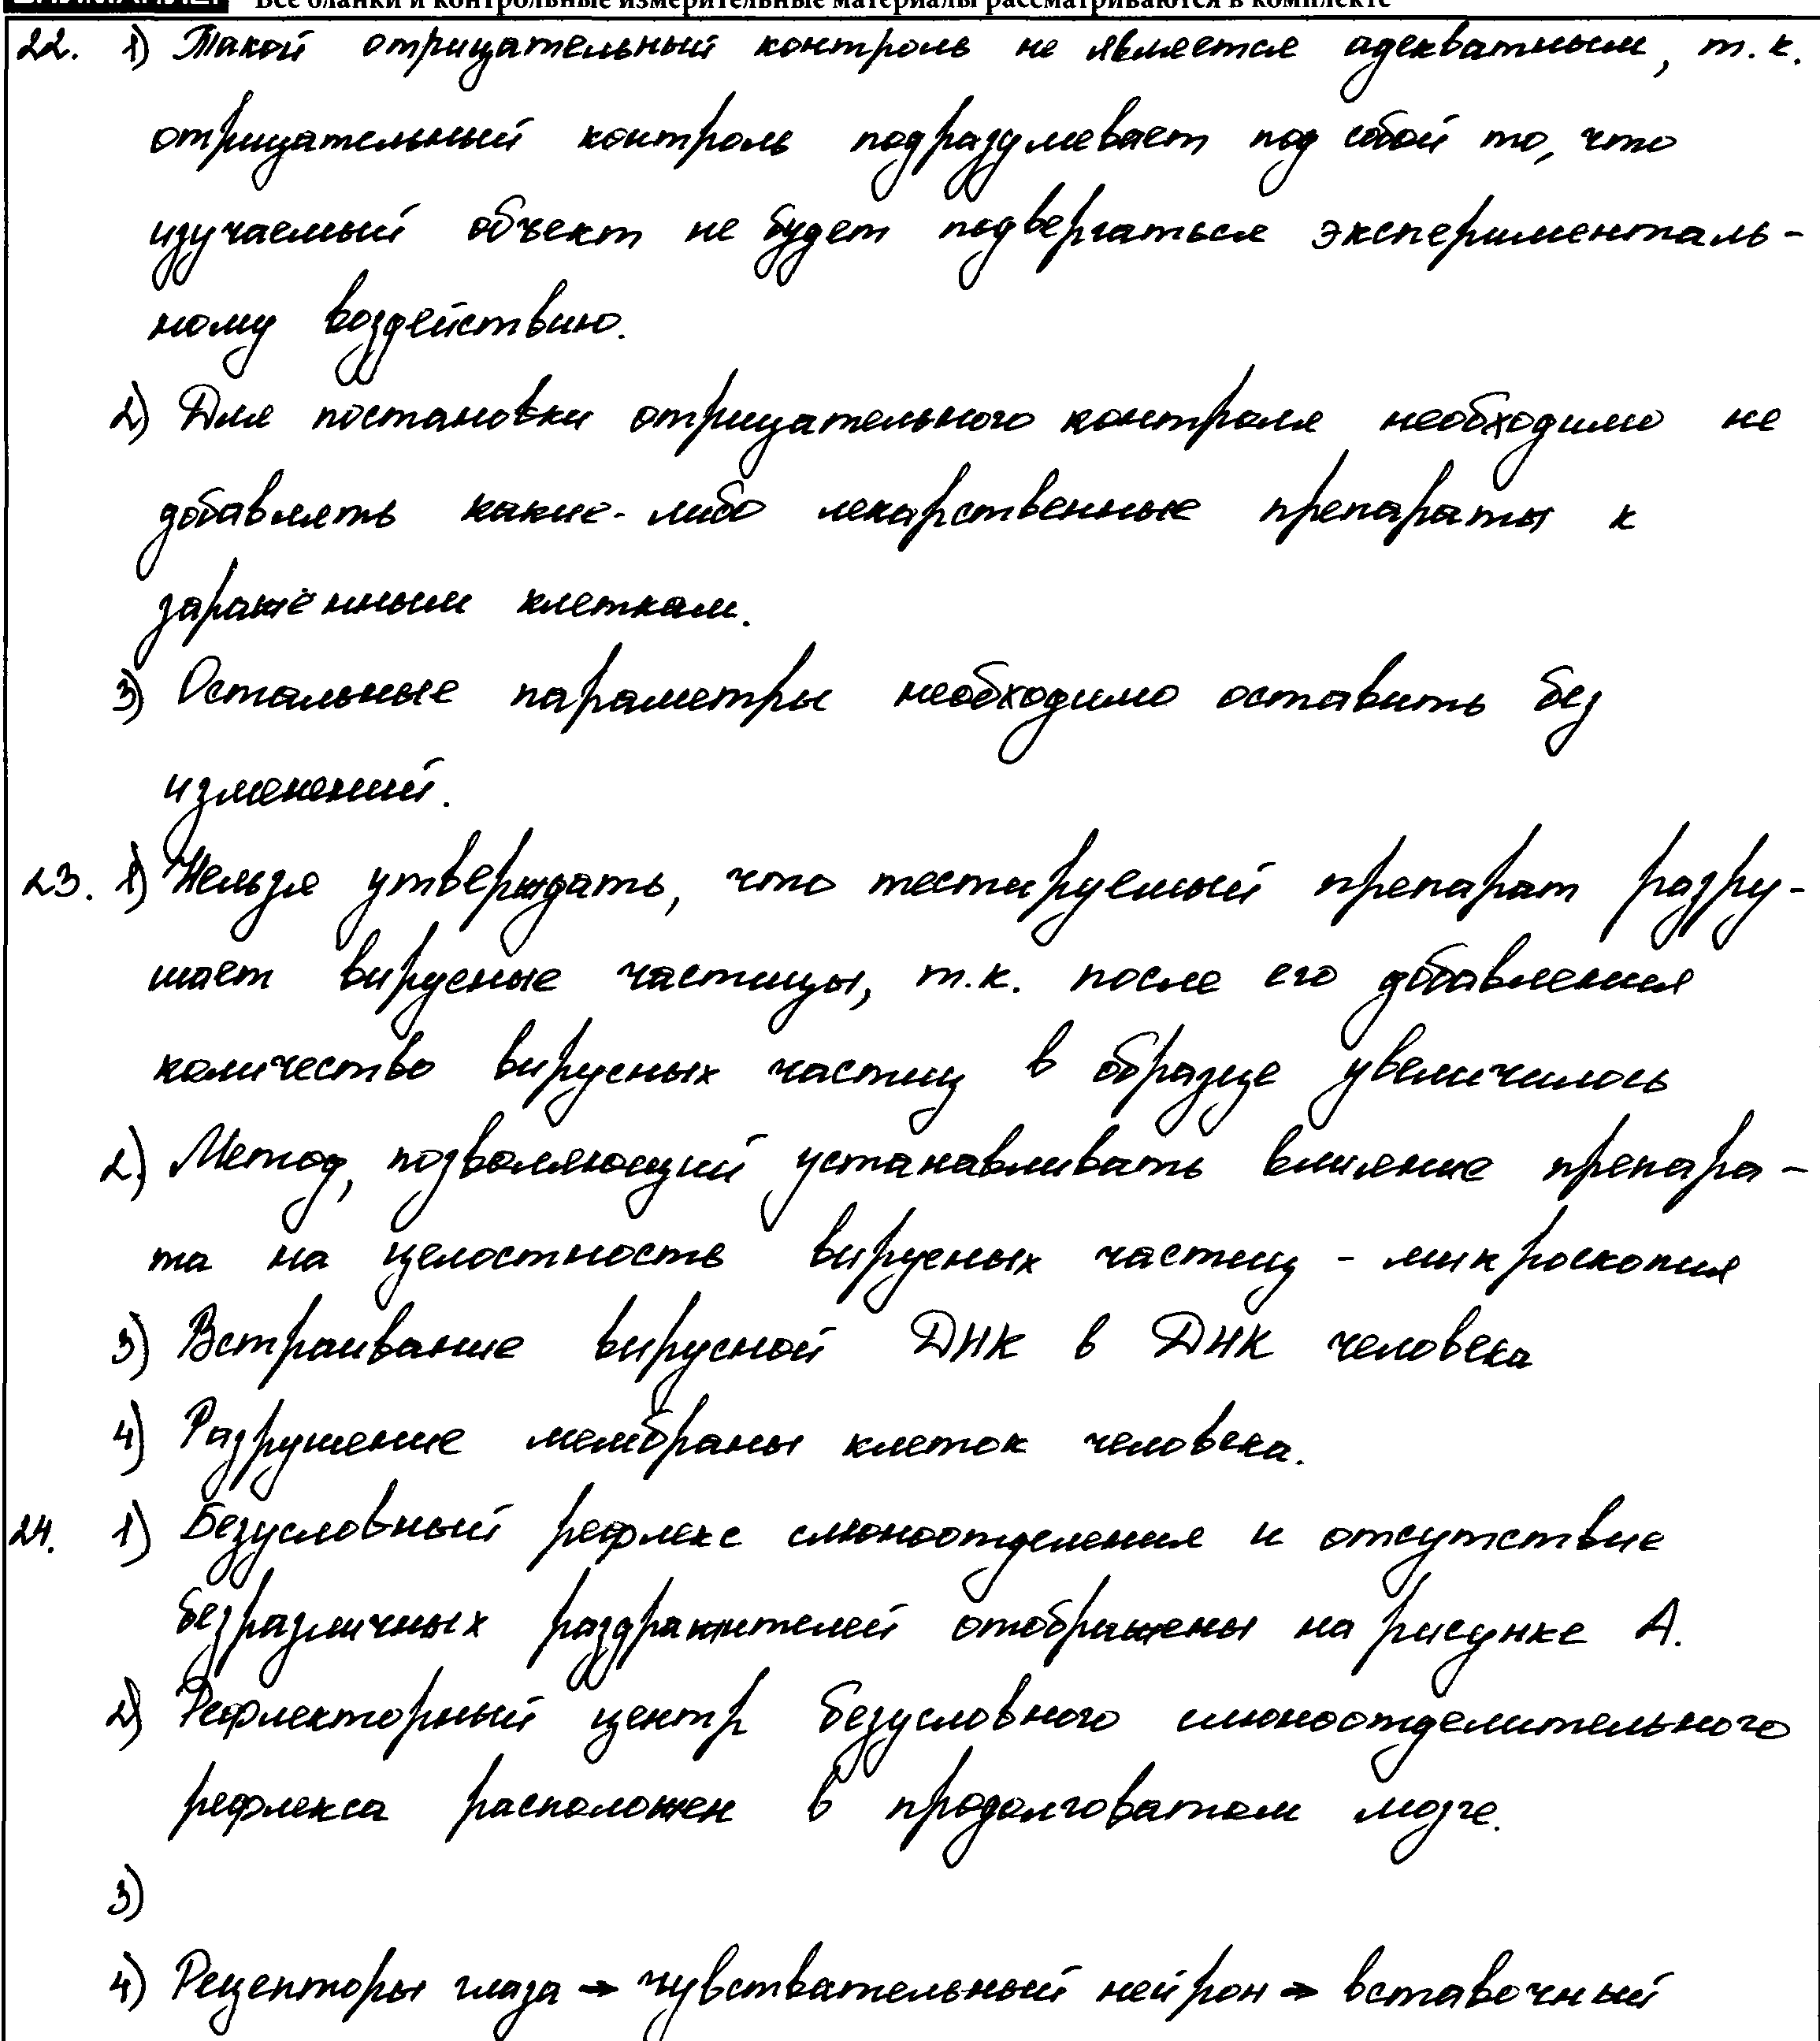 Все бланки и контрольные измерительные материалы рассматриваются в комплекте
22. 1) Такой отрицательный контроль не является адекватным, т.к.
отрицательный контроль подразумевает под собой то, что
изучаемый объект не будет подвергаться эксперименталь-
ному воздействию.
2) Для постановки отрицательного контроля необходимо не
добавлять какие-либо лекарственные препараты к
заражённым клеткам.
3) Остальные параметры необходимо оставить без
изменений.
23. 1) Нельзя утверждать, что тестируемый препарат разру-
шает вирусные частицы, т.к. после его добавления
количество вирусных частиц в образце увеличилось
2) Метод, позволяющий устанавливать влияние препара-
та на целостность вирусных частиц - микроскопия
3) Встраивание вирусной ДНК в ДНК человека
4) Разрушение мембраны клеток человека.
24. 1) Безусловный рефлекс слюноотделения и отсутствие
безразличных раздражителей отображены на рисунке А.
2) Рефлекторный центр безусловного слюноотделительного
рефлекса расположен в продолговатом мозге.
3)
4) Рецепторы глаза → чувствательный нейрон → вставочный